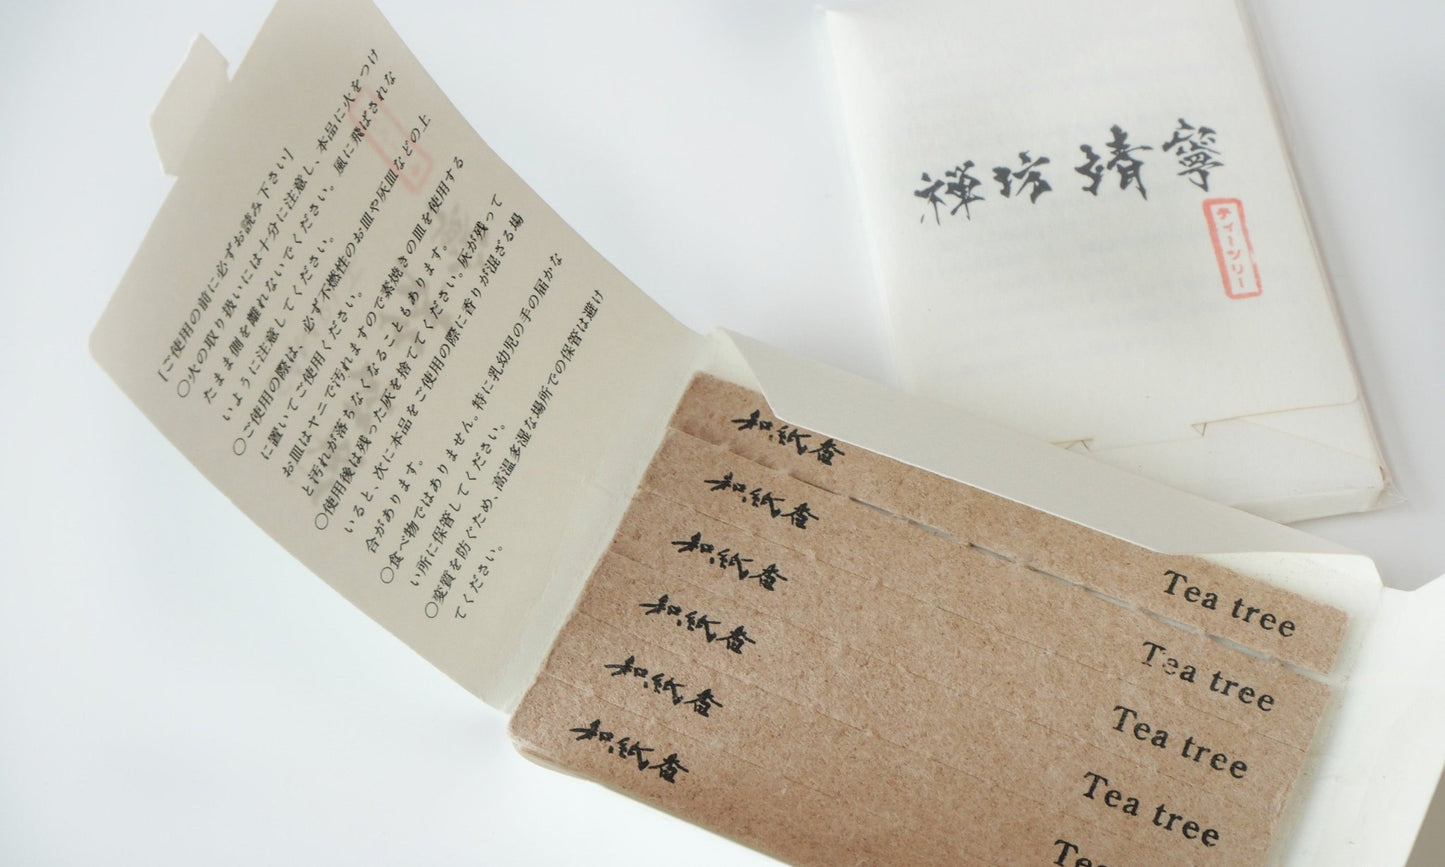 【ご使用の前に必ずお読み下さい】
○火の取り扱いには十分に注意し、本品に火をつけ
たまま側を離れないでください。風に飛ばされな
いように注意してください。
○ご使用の際は、必ず不燃性のお皿や灰皿などの上
に置いてご使用ください。
お皿はヤニで汚れますので素焼きの皿を使用する
と汚れが落ちなくなることもあります。
○使用後は残った灰を捨ててください。灰が残って
いると、次に本品をご使用の際に香りが混ざる場
合があります。
○食べ物ではありません。特に乳幼児の手の届かな
い所に保管してください。
○変質を防ぐため、高温多湿な場所での保管は避け
てください。
禅坊靖寧
ティーツリー
和紙香
Tea tree
和紙香
Tea tree
和紙香
Tea tree
和紙香
Tea tree
和紙香
Tea
和紙香